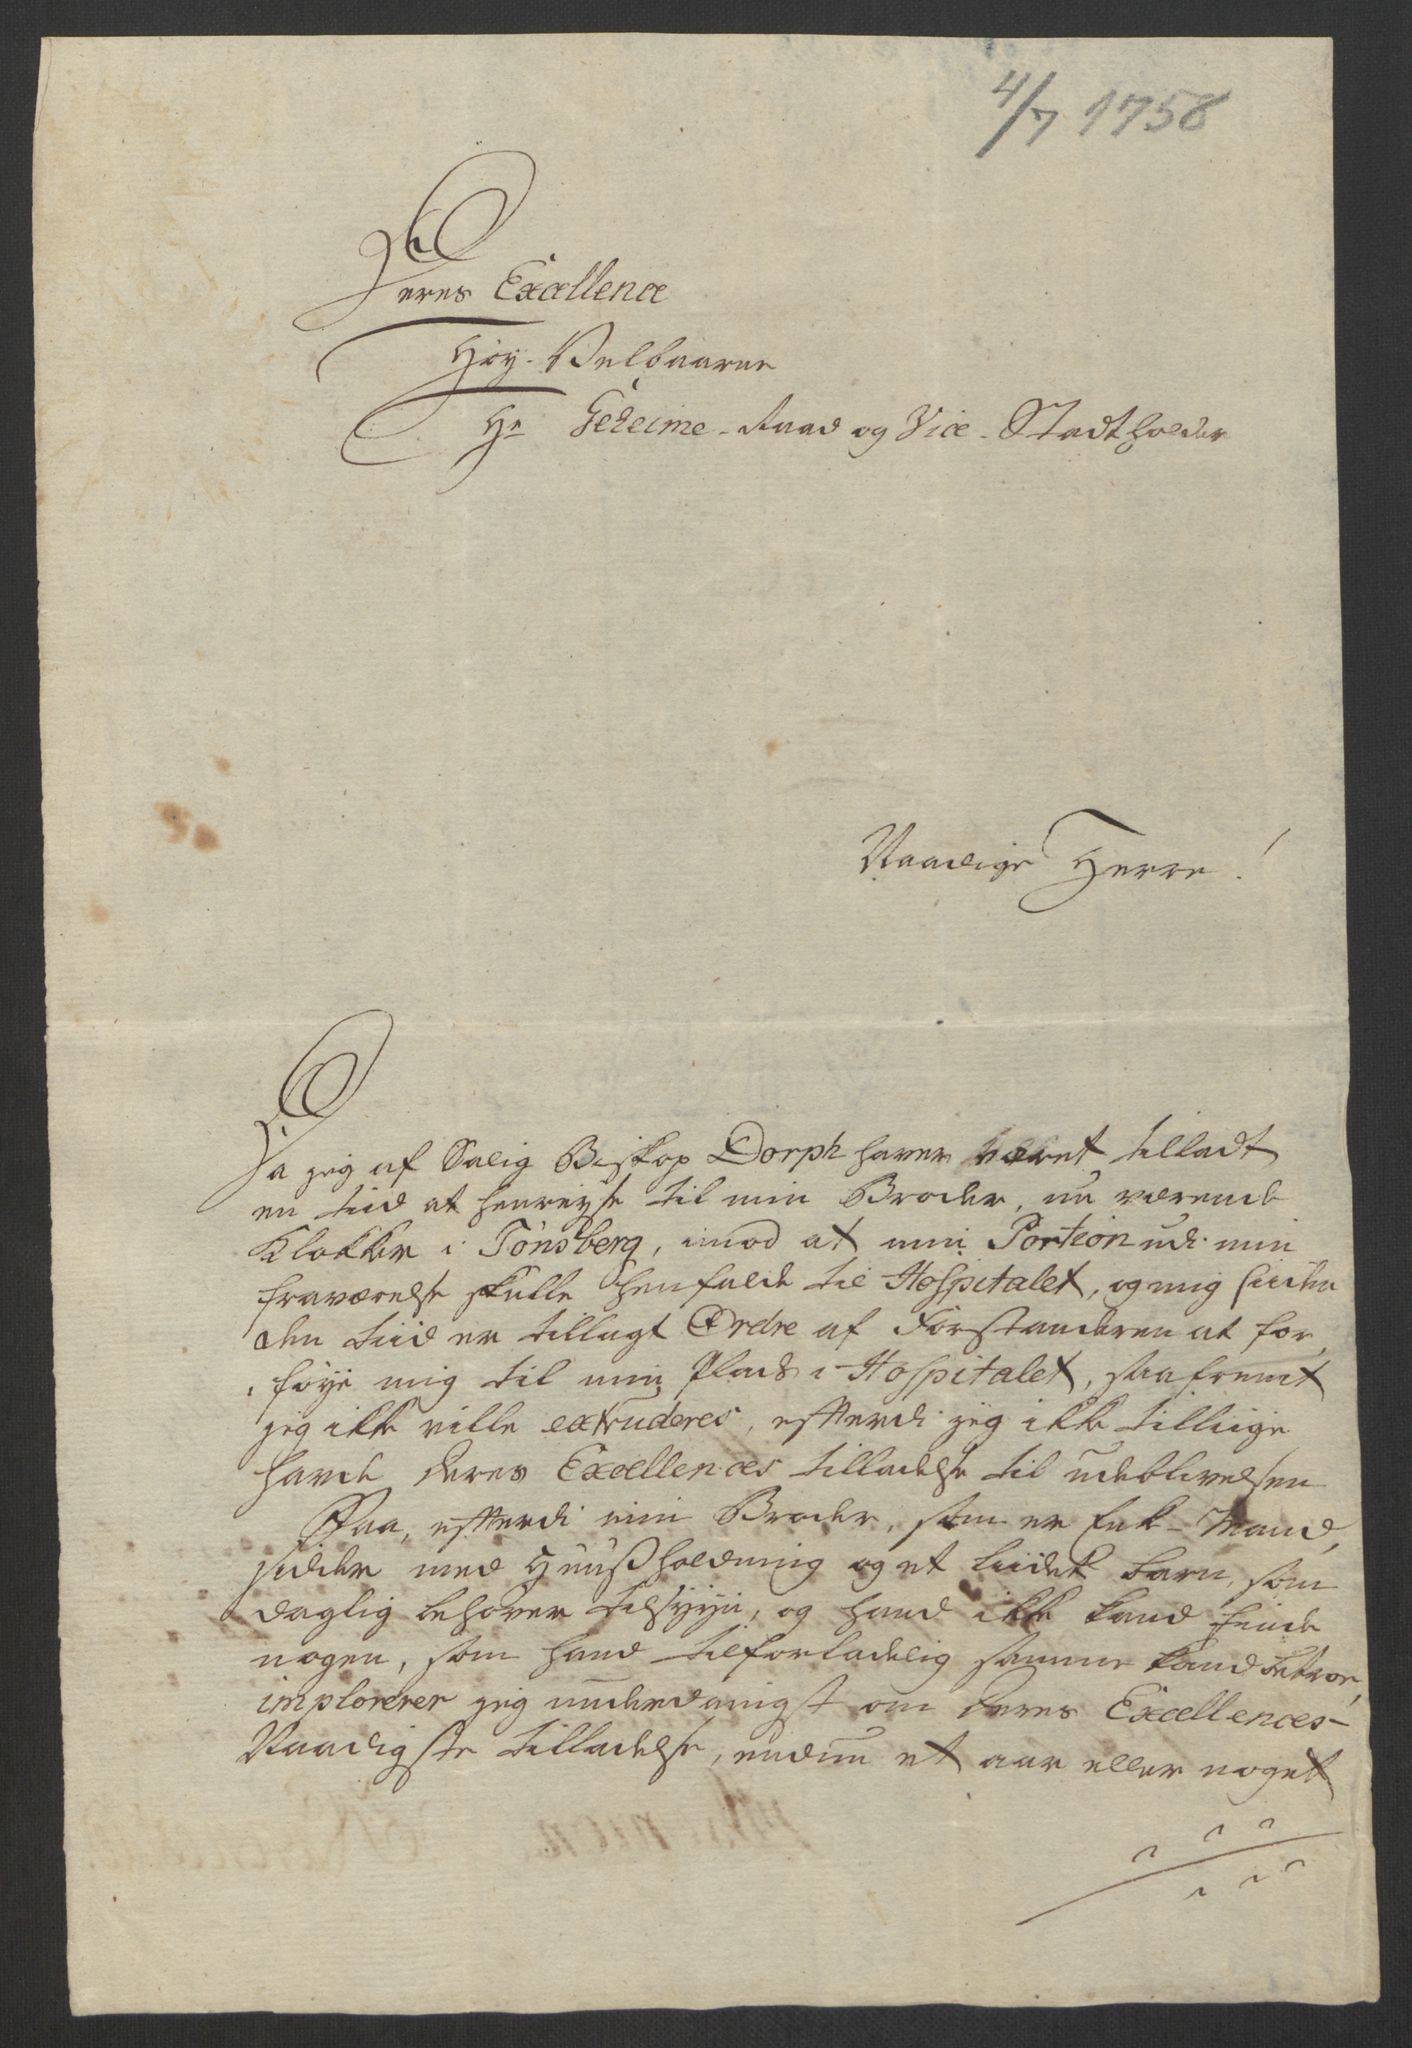 4/7 1758
Deres Excellence
Høy-Velbaarne
Hr Geheime-Raad og Vice-Stadtholder
Naadige Herre!
Da jeg af Salig Biskop Dorph haver været tilladt
en tiid at henreyse til min Broder, nu værende
Klokker i Tönsberg, imod at min Portion udi min
fraværelse skulle henfalde til Hospitalet, og mig siiden
den tiid er tillagt Ordre af Forstanderen at for,
föye mig til min Plads i Hospitalet, saafremt
jeg ikke ville extruderes, efterdi jeg ikke tilliige
havde Deres Excellences tilladelse til udeblivelsen
Saa, efterdi min Broder, som er Enke-Mand,
sidder med Huusholdning og et liidet barn, som
daglig behøver tilsyyn, og hand ikke kand finde
nogen, som hand tilforladelig samme kand betroe,
implorerer jeg underdanigst om Deres Excellences
Naadigste tilladelse, endnu et aar eller noget